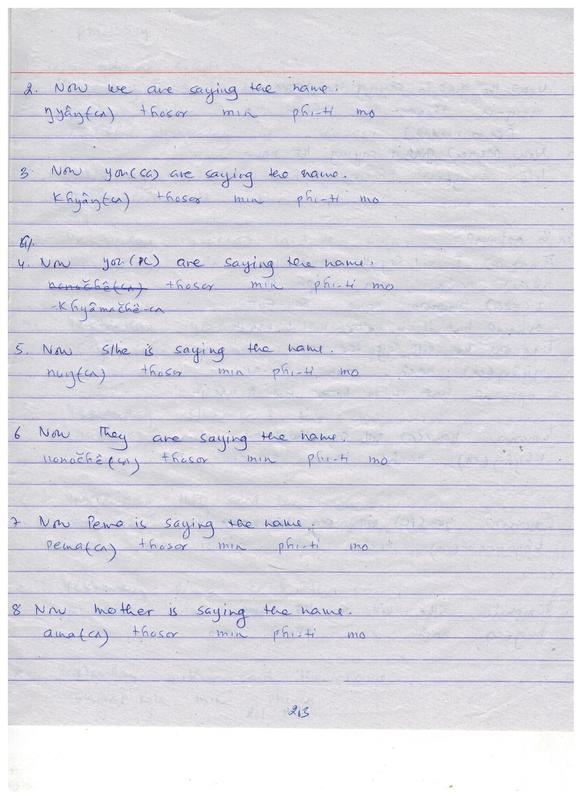 2. Now we are saying the name.
ŋyâŋ(cʌ) thosor min phi-ti mo
3 Now you(SG) are saying the name.
Khyâŋ(cʌ) thosor min phi-ti mo
4. Now you (PL) are saying the name.
nonočhê(cʌ) thosor min phi-ti mo
-Khyâmačhê-cʌ
5. Now s/he is saying the name.
nuŋ(cʌ) thosor min phi-ti mo
6 Now They are saying the name.
nonočhê(cʌ) thosor min phi-ti mo
7 Now Pema is saying the name.
pema(cʌ) thosor min phi-ti mo
8 Now mother is saying the name.
ama(cʌ) thosor min phi-ti mo
213